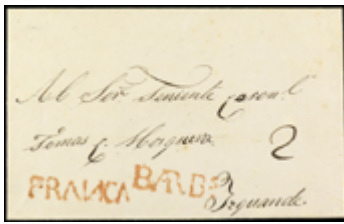 Al Sor. Teniente Coronl.
Tomas C. Mosquera
2
FRANCA BARBS